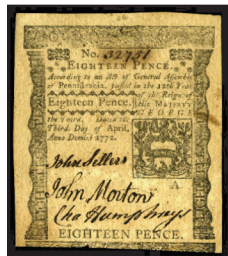 No. 32751
EIGHTEEN PENCE.
According to an Act of General Assembly
of Pennsylvania, passed in the 12th Year
of the Reign of
Eighteen Pence. His Majesty
GEORGE
the Third. Dated the
Third Day of April,
Anno Domini 1772.
John Sellers
A
John Morton
Cha Humphreys
EIGHTEEN PENCE.